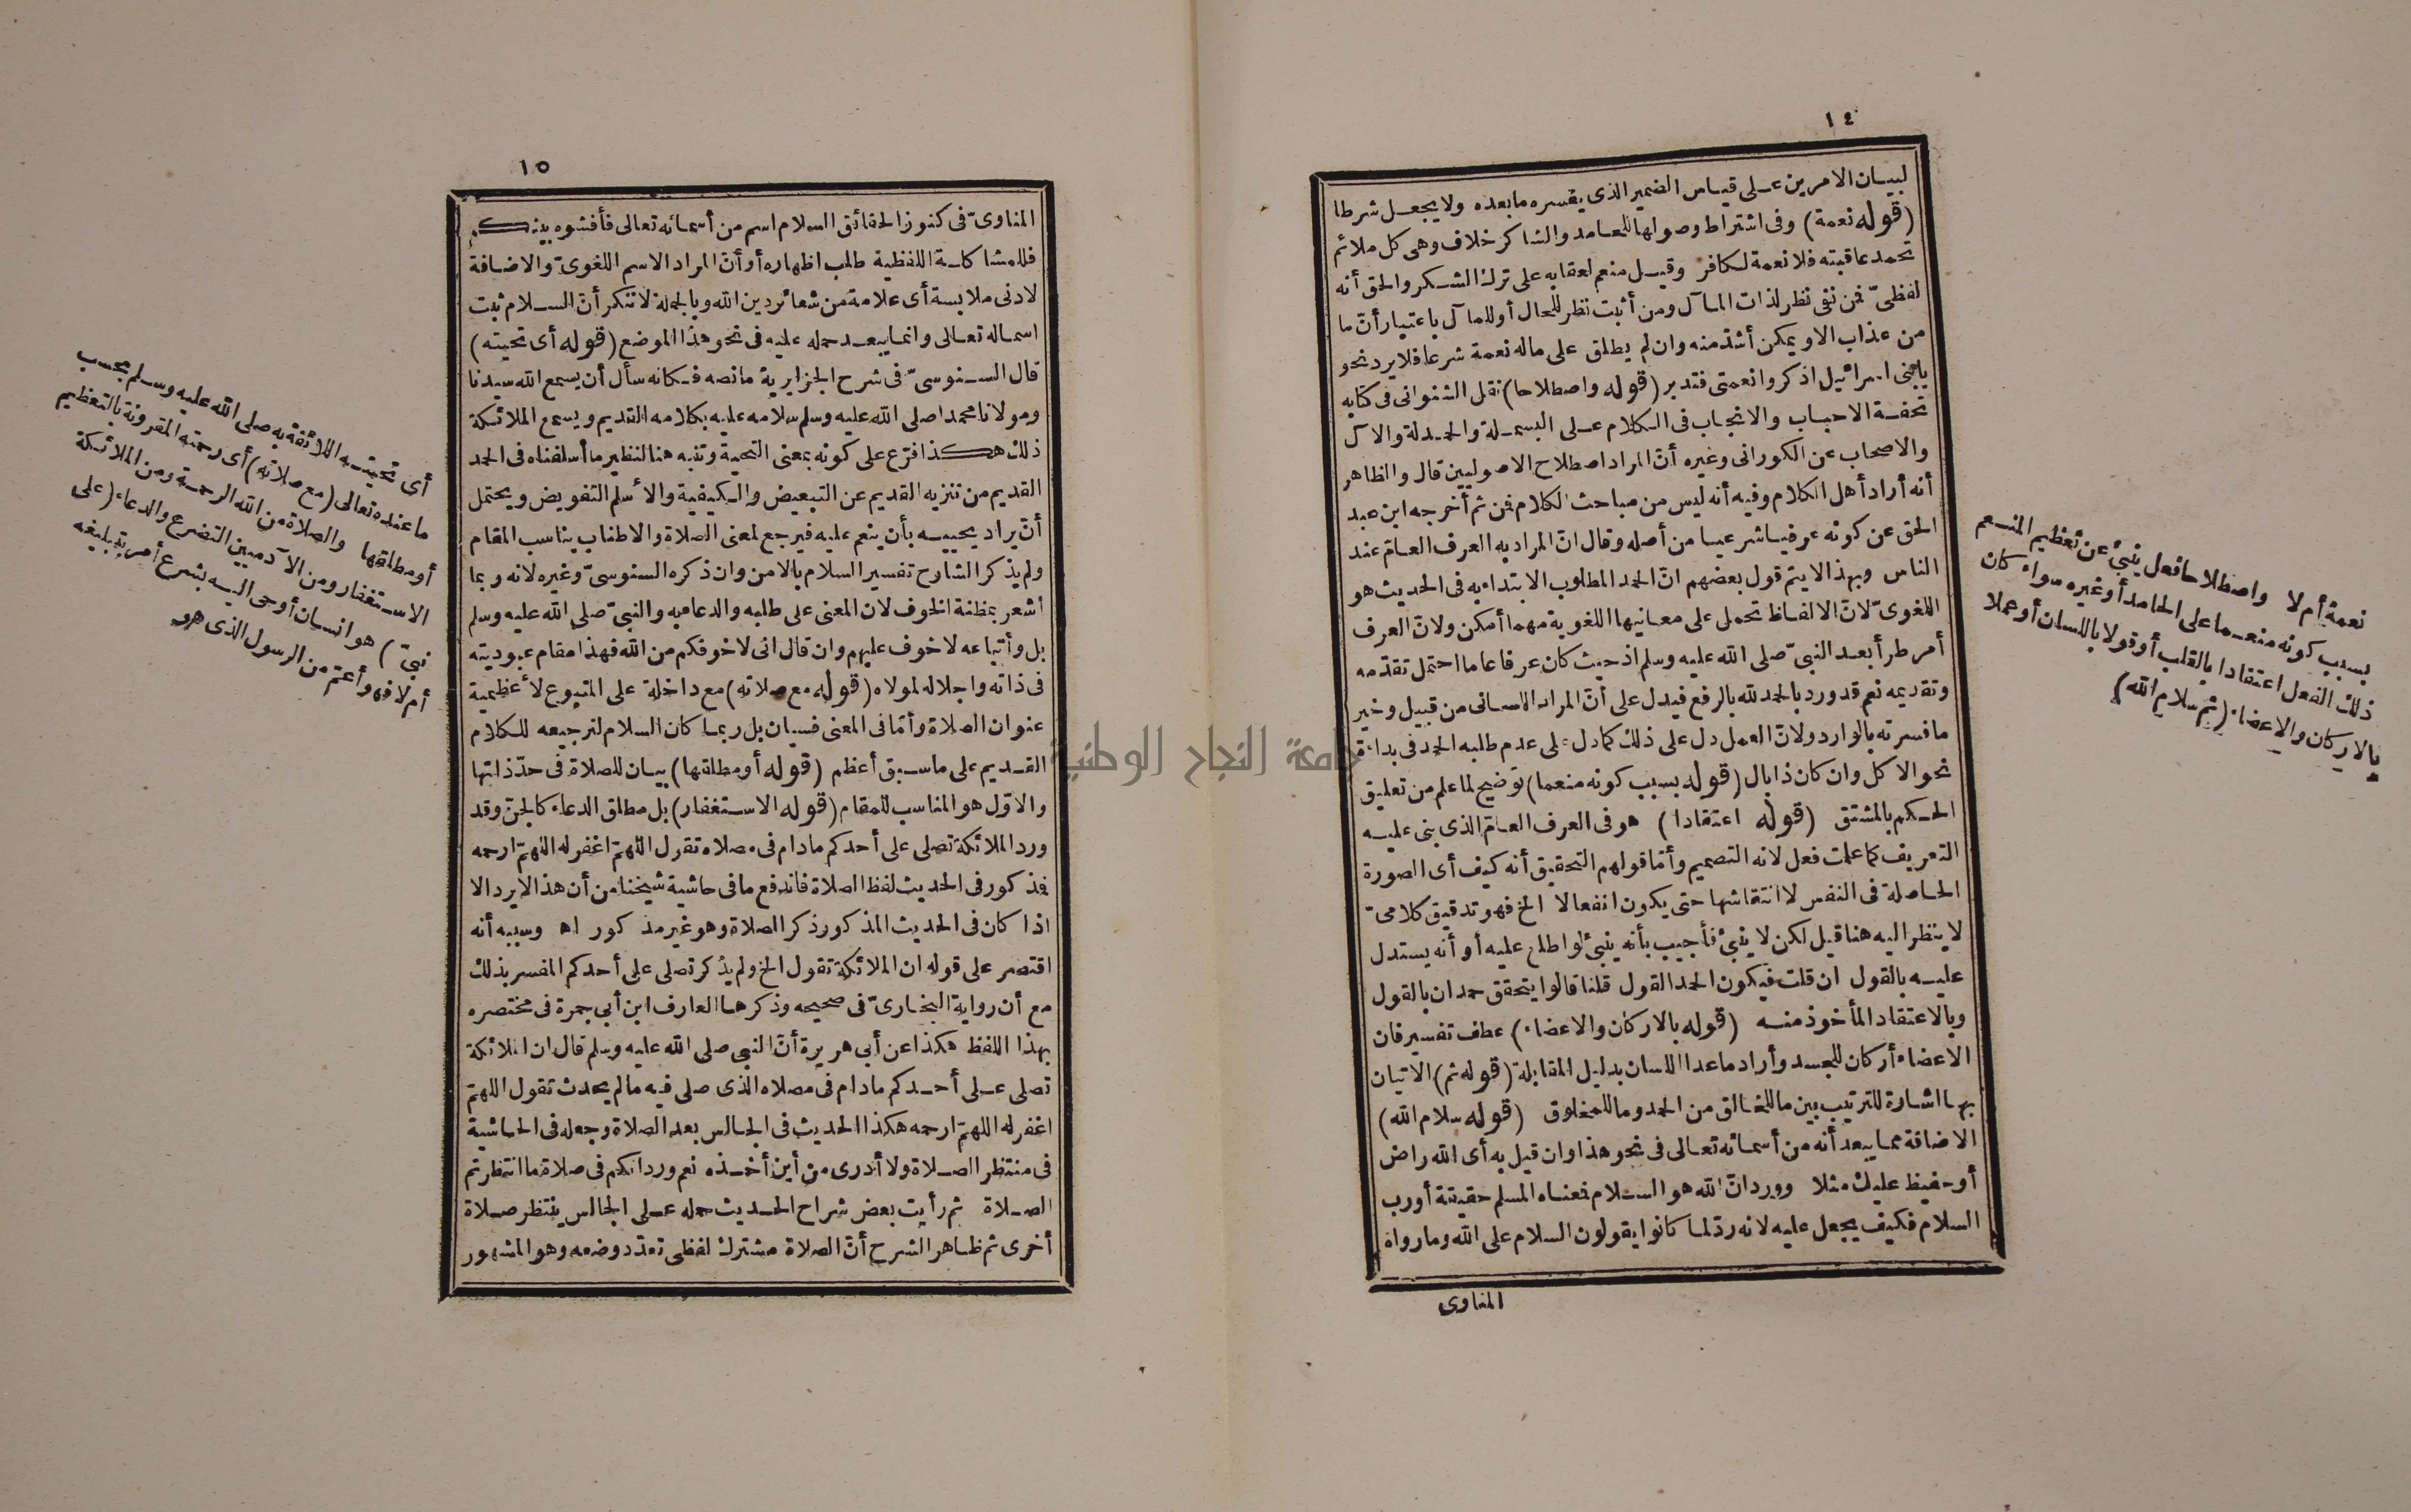 ١٤
لبيان الامرين على قياس الضمير الذى يفسره مابعده ولا يجعل شرطا
(قوله نعمة) وفى اشتراط وصولها للحامد والشاكر خلاف وهى كل ملائم
تحمد عاقبته فلا نعمة لكافر وقيل منعم لعقابه على ترك الشكر والحق أنه
لفظىّ فمن نفى نظر لذات المآل ومن أثبت نظر للحال أو للمآل باعتبار أنّ ما
من عذاب الاو يمكن أشدّ منه وان لم يطلق على ماله نعمة شرعا فلا يرد نحو
يابنى اسرائيل اذكروا نعمتى فتدبر (قوله واصطلاحا) نقل الشنوانى فى كتابه
تحفة الاحباب والانجاب فى الكلام على البسملة والحمدلة والآل
والاصحاب عن الكورانى وغيره أنّ المراد اصطلاح الاصوليين قال والظاهر
أنه أراد أهل الكلام وفيه أنه ليس من مباحث الكلام فمن ثم أخرجه ابن عبد
الحق عن كونه عرفيا شرعيا من أصله وقال انّ المراد به العرف العامّ عند
الناس وبهذا لا يتم قول بعضهم انّ الحمد المطلوب الابتداء به فى الحديث هو
اللغوىّ لانّ الالفاظ تحمل على معانيها اللغوية مهما أمكن ولانّ العرف
أمر طرأ بعد النبىّ صلى الله عليه وسلم اذ حيث كان عرفا عاما احتمل تقدّمه
وتقديمه نعم قد ورد بالحمد لله بالرفع فيدل على أنّ المراد اللسانى من قبيل وخير
ما فسرته بالوارد ولانّ العمل دل على ذلك كما دل على عدم طلبه الحمد فى بداءة
نحو الاكل وان كان ذا بال (قوله بسبب كونه منعما) توضيح لما علم من تعليق
الحكم بالمشتق (قوله اعتقادا) هو فى العرف العامّ الذى بنى عليه
التعريف كما علمت فعل لانه التصميم وأمّا قولهم التحقيق أنه كيف أى الصورة
الحاصلة فى النفس لا انتقاشها حتى يكون انفعالا الخ فهو تدقيق كلامىّ
لا ينظر اليه هنا قيل لكن لا ينبئ فأجيب بأنه ينبئ لو اطلع عليه أو أنه يستدل
عليه بالقول ان قلت فيكون الحمد القول قلنا قالوا يتحقق حمدان بالقول
وبالاعتقاد المأخوذ منه (قوله بالاركان والاعضاء) عطف تفسير فان
الاعضاء أركان للجسد وأراد ماعدا اللسان بدليل المقابلة (قوله ثم) الاتيان
بها اشارة للترتيب بين ما للخالق من الحمد وما للمخلوق (قوله سلام الله)
الاضافة مما يبعد أنه من أسمائه تعالى فى نحو هذا وان قيل به أى الله راض
أو حفيظ عليك مثلا وورد انّ الله هو السلام فمعناه المسلم حقيقة أو رب
السلام فكيف يجعل عليه لانه ردّ لما كانوا يقولون السلام على الله وما رواه
المناوى
نعمة أم لا واصطلاحا فعل ينبئ عن تعظيم المنعم
بسبب كونه منعما على الحامد أو غيره سواء كان
ذلك الفعل اعتقادا بالقلب أو قولا باللسان أو عملا
بالاركان والاعضاء (ثم سلام الله)
١٥
المناوىّ فى كنوز الحقائق السلام اسم من أسمائه تعالى فأفشوه بينكم
فللمشاكلة اللفظية طلب اظهاره أو أنّ المراد الاسم اللغوىّ والاضافة
لادنى ملابسة أى علامة من شعائر دين الله وبالجملة لا ننكر أنّ السلام ثبت
اسما له تعالى وانما يبعد حمله عليه فى نحو هذا الموضع (قوله أى تحيته)
قال السنوسىّ فى شرح الجزايرية مانصه فكانه سأل أن يسمع الله سيدنا
ومولانا محمدا صلى الله عليه وسلم سلامه عليه بكلامه القديم ويسمع الملائكة
ذلك هكذا فرّع على كونه بمعنى التحية وتنبه هنا لنظير ما أسلفناه فى الحمد
القديم من تنزيه القديم عن التبعيض والكيفية والأسلم التفويض ويحتمل
أن يراد يحييه بأن ينعم عليه فيرجع لمعنى الصلاة والاطناب يناسب المقام
ولم يذكر الشارح تفسير السلام بالامن وان ذكره السنوسىّ وغيره لانه ربما
أشعر بمظنة الخوف لان المعنى على طلبه والدعاء به والنبىّ صلى الله عليه وسلم
بل وأتباعه لا خوف عليهم وان قال انى لاخوفكم من الله فهذا مقام عبوديته
فى ذاته واجلاله لمولاه (قوله مع صلاته) مع داخلة على المتبوع لأعظمية
عنوان الصلاة وأمّا فى المعنى فسيان بل ربما كان السلام لترجيعه للكلام
القديم على ما سبق أعظم (قوله أو مطلقها) بيان للصلاة فى حدّ ذاتها
والاوّل هو المناسب للمقام (قوله الاستغفار) بل مطلق الدعاء كالجنّ وقد
ورد الملائكة تصلى على أحدكم مادام فى مصلاه تقول اللهمّ اغفر له اللهمّ ارحمه
فذكور فى الحديث لفظ الصلاة فاندفع ما فى حاشية شيخنا من أن هذا لا يرد الا
اذا كان فى الحديث المذكور ذكر الصلاة وهو غير مذكور اه وسببه أنه
اقتصر على قوله ان الملائكة تقول الخ ولم يذكر تصلى على أحدكم المفسر بذلك
مع أن رواية البخارىّ فى صحيحه وذكرها العارف ابن أبى جمرة فى مختصره
بهذا اللفظ هكذا عن أبى هريرة أنّ النبى صلى الله عليه وسلم قال ان الملائكة
تصلى على أحدكم مادام فى مصلاه الذى صلى فيه مالم يحدث تقول اللهمّ
اغفر له اللهمّ ارحمه هكذا الحديث فى الجالس بعد الصلاة وجعله فى الحاشية
فى منتظر الصلاة ولا أدرى من أين أخذه نعم ورد انكم فى صلاة ما انتظرتم
الصلاة ثم رأيت بعض شراح الحديث حمله على الجالس ينتظر صلاة
أخرى ثم ظاهر الشرح أنّ الصلاة مشترك لفظى تعدّد وضعه وهو المشهور
أى تحيته اللائقة به صلى الله عليه وسلم بحسب
ما عنده تعالى (مع صلاته) أى رحمته المقرونة بالتعظيم
أو مطلقها والصلاة من الله الرحمة ومن الملائكة
الاستغفار ومن الآدميين التضرع والدعاء (على
نبىّ) هو انسان أوحى اليه بشرع أمر بتبليغه
أم لا فهو أعمّ من الرسول الذى هو
جامعة النجاح الوطنية